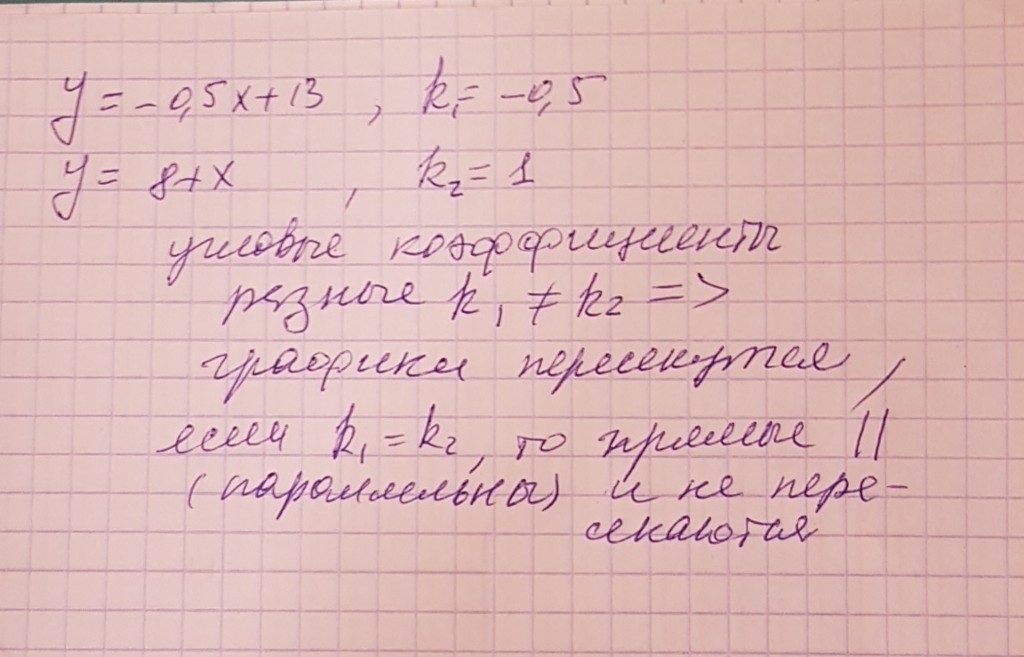 y = -0,5x+13 , k₁= -0,5
y = 8+x , k₂= 1
угловые коэффициенты
разные k₁ ≠ k₂ =>
графики пересекутся ,
если k₁ = k₂, то прямые ||
(параллельны) и не пере-
секаются